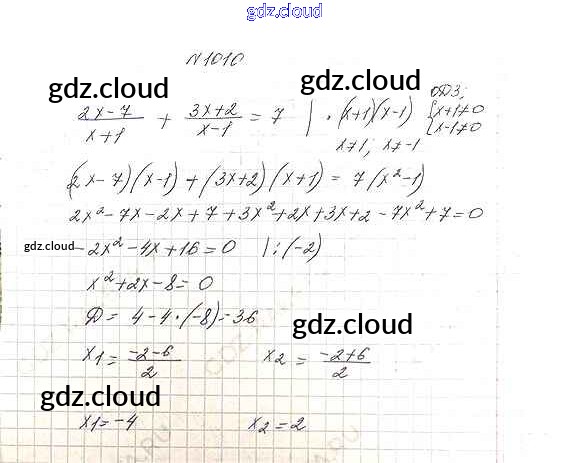 gdz.cloud
N1010
gdz.cloud gdz.cloud
(2x-7)/(x+1) + (3x+2)/(x-1) = 7 | · (x+1)(x-1) ОДЗ: {x+1≠0
{x-1≠0
x≠1; x≠-1
(2x-7)(x-1) + (3x+2)(x+1) = 7(x²-1)
2x²-7x-2x+7+3x²+2x+3x+2-7x²+7=0
gdz.cloud -2x²-4x+16=0 |:(-2)
x²+2x-8=0
Д= 4-4·(-8)=36
gdz.cloud
x₁=(-2-6)/2 x₂=(-2+6)/2
gdz.cloud
x₁=-4 x₂=2